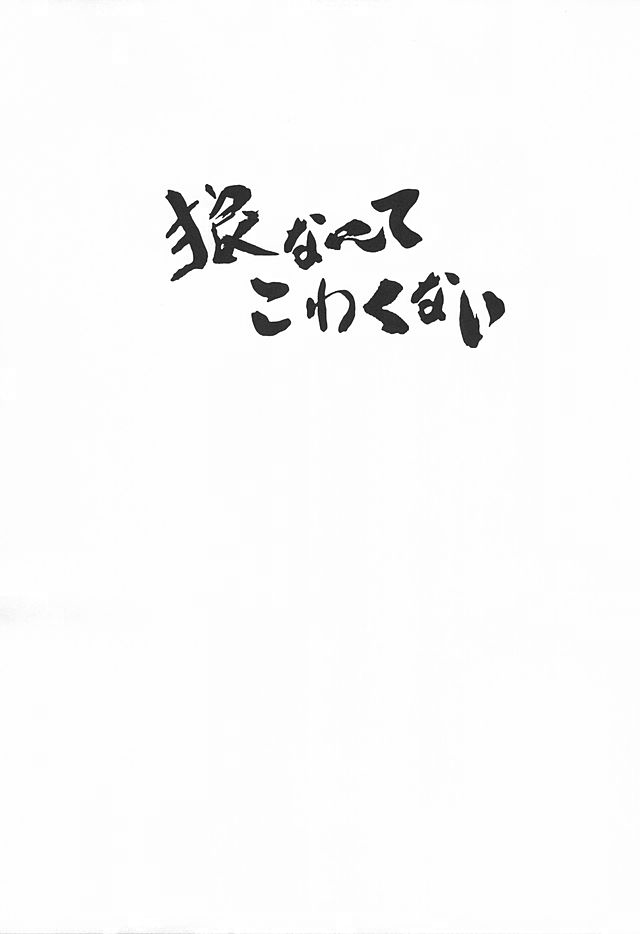 狼なんて
こわくない